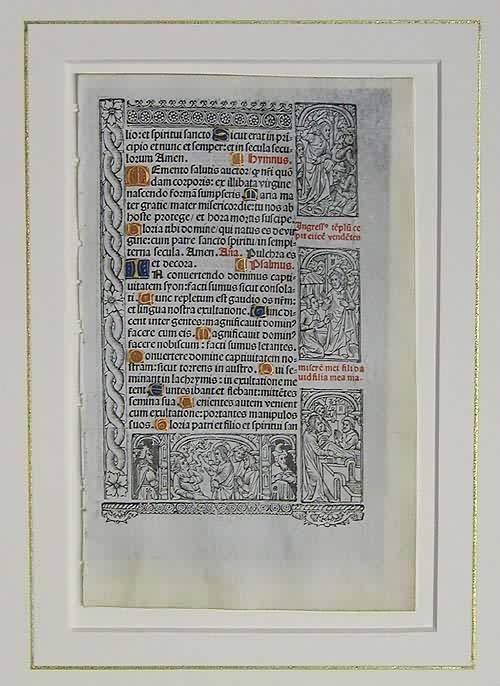 lio: et spiritui sancto Sicut erat in pri
cipio et nunc et semper: et in secula secu
lorum Amen. Hymnus.
Memento salutis auctor: q nr̄i quō
dam corporis: ex illibata virgine
nascendo formā sumpseris Maria ma
ter gratie: mater misericordie: tu nos ab
hoste protege: et hora mortis suscipe.
Gloria tibi domine: qui natus es de vir
gine: cum patre sancto spiritu: in sempi
terna secula. Amen. Añā. Pulchra es
et decora. Psalmus.
IN convertendo dominus capti
vitatem syon: facti sumus sicut consola
ti. Tunc repletum est gaudio os nr̄m:
et lingua nostra exultatione. Tunc di
cent inter gentes: magnificavit domin⁹
facere cum eis. Magnificavit domin⁹
facere nobiscum: facti sumus letantes.
Convertere domine captivitatem no
stram: sicut torrens in austro. Qui se
minant in lachrymis: in exultatione me
tent. Euntes ibant et flebant: mittētes
semina sua. Venientes autem venient
cum exultatione: portantes manipulos
suos. Gloria patri et filio et spiritui san
Ingress⁹ tēplū ce
pit eiicē vendētes
miserē mei fili da
vid filia mea ma.